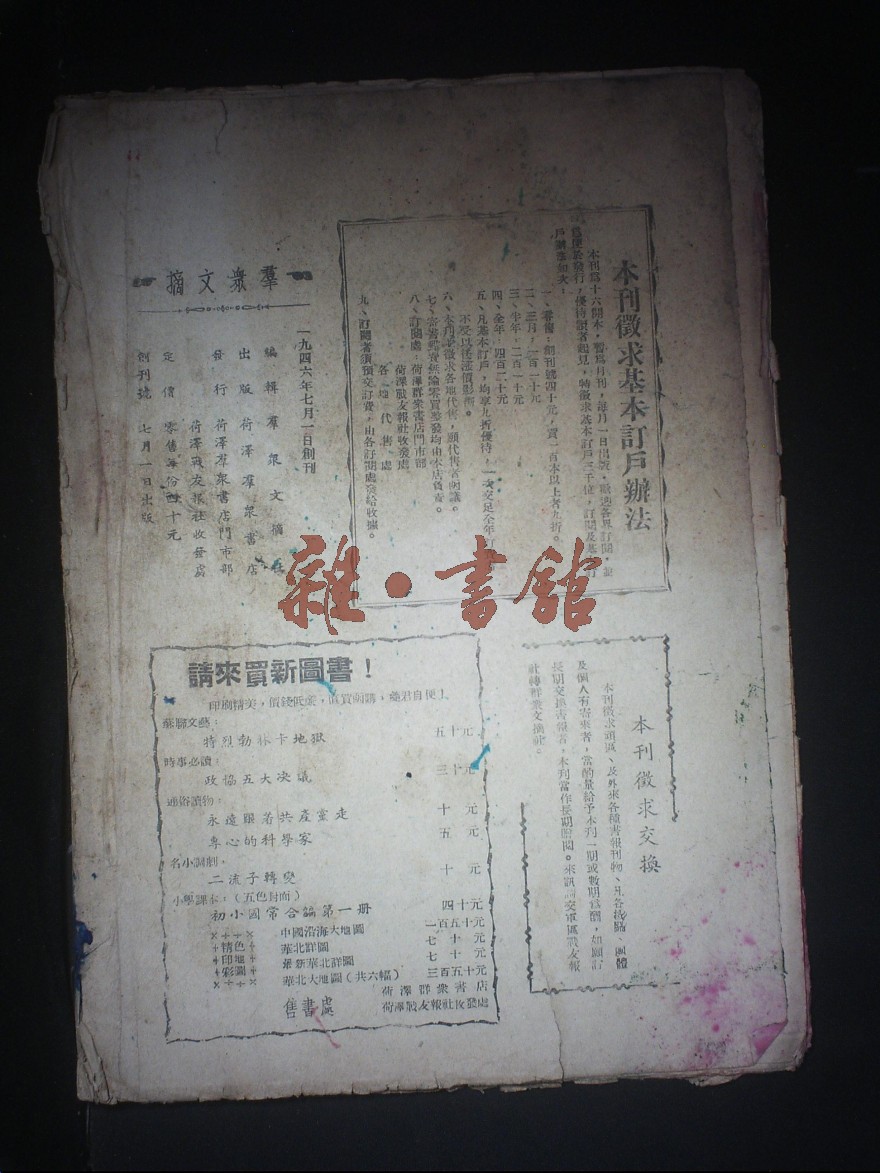 本刊徵求基本訂戶辦法
本刊為十六開本，暫為月刊，每月一日出版，歡迎各界訂閱，並
為便於發行，優待讀者起見，特徵求基本訂戶三千位，訂閱及基本訂
戶辦法如次：
一、零售：創刊號四十元，買一百本以上者九折。
二、三月，一百二十元
三、半年，二百一十元
四、全年，四百二十元
五、凡基本訂戶，均享九折優待，一次交足全年訂
不受以後漲價影響。
六、本刊徵求各地代售，願代售者函議。
七、寄書郵費無論零買整發均由本店負責。
八、訂閱處：荷澤群衆書店門市部
荷澤戰友報社收發處
各地代售處
九、訂閱者須預交訂費，由各訂閱處發給收據。
羣衆文摘
一九四六年七月一日創刊
編輯 羣衆文摘社
出版 荷澤羣衆書店
發行 荷澤羣衆書店門市部
荷澤戰友報社收發處
定價 零售每份四十元
創刊號 七月一日出版
雜·書館
本刊徵求交換
本刊徵求 區、及外來各種書報刊物、凡各機關、團體
及個人有寄來者，當酌量給予本刊一期或數期為酬，如願訂
長期交換書報者，本刊當作長期贈閱。來訊請交軍區戰友報
社轉群衆文摘社。
請來買新圖書！
印刷精美，價錢低廉，買 請，諸君自便！
蘇聯文藝：
特烈勃林卡地獄 五十元
時事必讀：
政協五大决議 三十元
通俗讀物：
永遠跟着共產黨走 十元
專心的科學家 五元
名小調劇：
二流子轉變 十元
小學課本：（五色封面）
初小國常合論第一册 四十元
精色印地彩圖
中國沿海大地圖 一百五十元
華北詳圖 七十元
最新華北詳圖 七十元
華北大地圖（共六幅） 三百五十元
售書處
荷澤群衆書店
荷澤戰友報社收發處